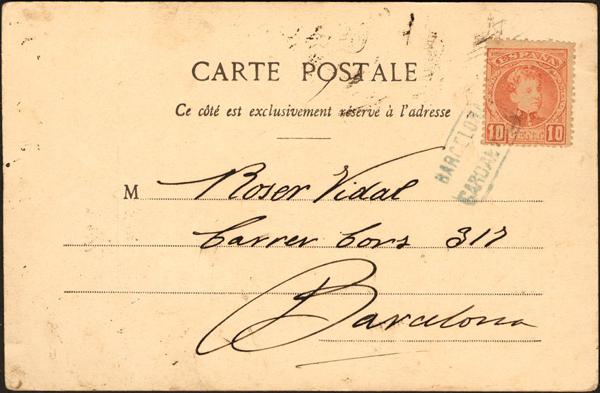 CARTE POSTALE
Ce côté est exclusivement réservé à l'adresse
ESPAÑA
10 CENT. 10
BARCELO
M Roser Vidal
Carrer Cors 317
Barcelona